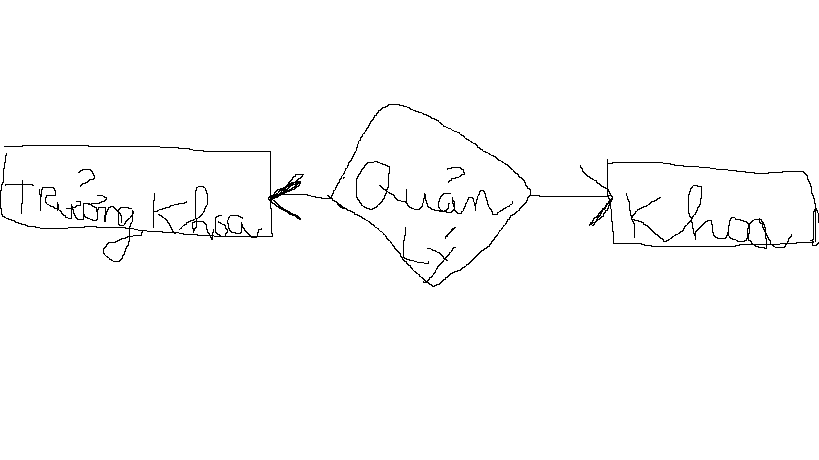 Trưởng Khoa
Quản
Lý
Khoa